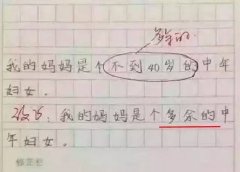 多余的
我的妈妈是个不到40岁的中年
妇女。
改为：我的妈妈是个多余的中
年妇女。
修改栏